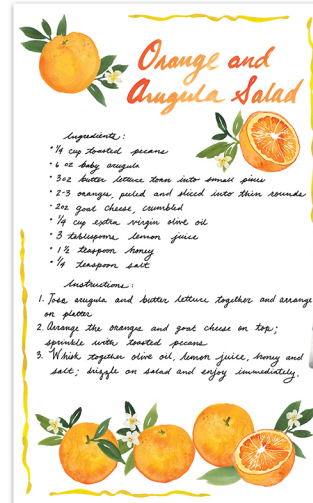 Orange and
Arugula Salad
Ingredients:
• 1/4 cup toasted pecans
• 6 oz baby arugula
• 3oz butter lettuce torn into small pieces
• 2-3 oranges, peeled and sliced into thin rounds
• 2oz goat cheese, crumbled
• 1/4 cup extra virgin olive oil
• 3 tablespoons lemon juice
• 1 1/2 teaspoon honey
• 1/4 teaspoon salt
Instructions:
1. Toss arugula and butter lettuce together and arrange
on platter
2. Arrange the oranges and goat cheese on top;
sprinkle with toasted pecans
3. Whisk together olive oil, lemon juice, honey and
salt; drizzle on salad and enjoy immediately.